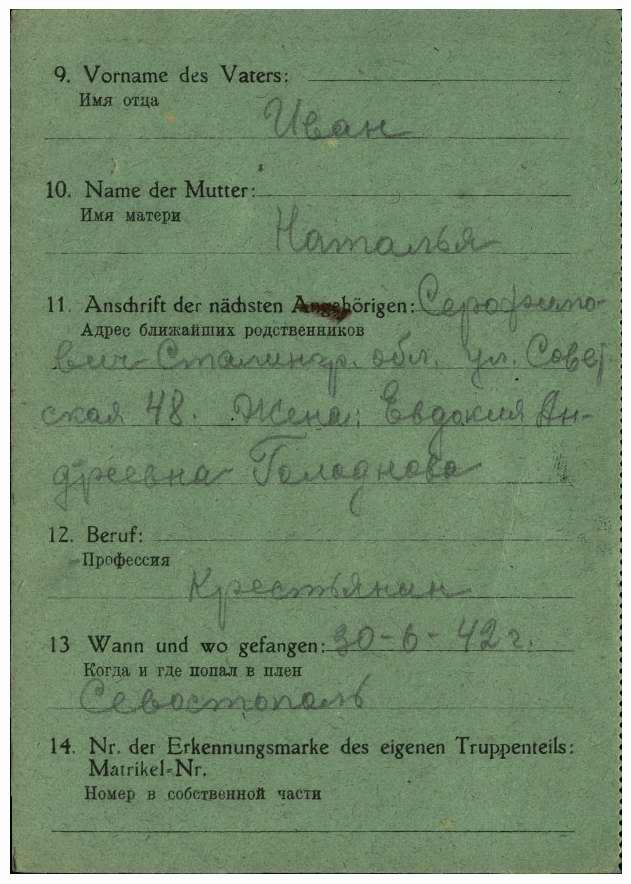 9. Vorname des Vaters:
Имя отца
Иван
10. Name der Mutter:
Имя матери
Наталья
11. Anschrift der nächsten Angehörigen: Серафимо-
Адрес ближайших родственников
вич Сталингр. обл. ул. Совет
ская 48. Жена: Евдокия Ан-
дреевна Голоднова
12. Beruf:
Профессия
Крестьянин
13 Wann und wo gefangen: 30-6-42 г.
Когда и где попал в плен
Севостополь
14. Nr. der Erkennungsmarke des eigenen Truppenteils:
Matrikel-Nr.
Номер в собственной части